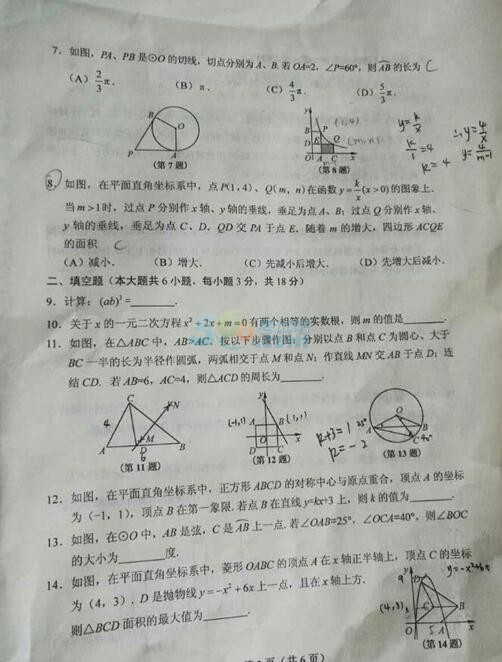 7. 如图，PA、PB 是⊙O 的切线，切点分别为 A、B. 若 OA=2，∠P=60°，则 AB 的长为 C
(A) 2/3 π. (B) π. (C) 4/3 π. (D) 5/3 π.
B O P A
(第 7 题)
y B P D E Q O A C x
(1,4)
(m,n)
(第 8 题)
y=k/x
k/1=4
k=4
∴y=4/x
y=4/m-1
8. 如图，在平面直角坐标系中，点 P(1, 4)、Q(m, n) 在函数 y=k/x (x>0) 的图象上.
当 m>1 时，过点 P 分别作 x 轴、y 轴的垂线，垂足为点 A、B；过点 Q 分别作 x 轴、
y 轴的垂线，垂足为点 C、D. QD 交 PA 于点 E. 随着 m 的增大，四边形 ACQE
的面积 C
(A) 减小. (B) 增大. (C) 先减小后增大. (D) 先增大后减小.
二、填空题（本大题共 6 小题，每小题 3 分，共 18 分）
9. 计算：(ab)³ =______.
10. 关于 x 的一元二次方程 x²+2x+m=0 有两个相等的实数根，则 m 的值是______.
11. 如图，在△ABC 中，AB>AC. 按以下步骤作图：分别以点 B 和点 C 为圆心、大于
BC 一半的长为半径作圆弧，两弧相交于点 M 和点 N；作直线 MN 交 AB 于点 D；连
结 CD. 若 AB=6，AC=4，则△ACD 的周长为______.
C N 4 M A D B 6
(第 11 题)
y (-1,1) A B (1,1) O x D C
(第 12 题)
k+3=1
k=-2
O A 25° B C 40°
(第 13 题)
12. 如图，在平面直角坐标系中，正方形 ABCD 的对称中心与原点重合，顶点 A 的坐标
为 (−1, 1)，顶点 B 在第一象限. 若点 B 在直线 y=kx+3 上，则 k 的值为______.
13. 如图，在⊙O 中，AB 是弦，C 是 AB 上一点. 若∠OAB=25°，∠OCA=40°，则∠BOC
的大小为______度.
14. 如图，在平面直角坐标系中，菱形 OABC 的顶点 A 在 x 轴正半轴上，顶点 C 的坐标
为 (4, 3). D 是抛物线 y=−x²+6x 上一点，且在 x 轴上方.
则△BCD 面积的最大值为______.
y 9 D (4,3) C B O 5 A x
(第 14 题)
(共 6 页)